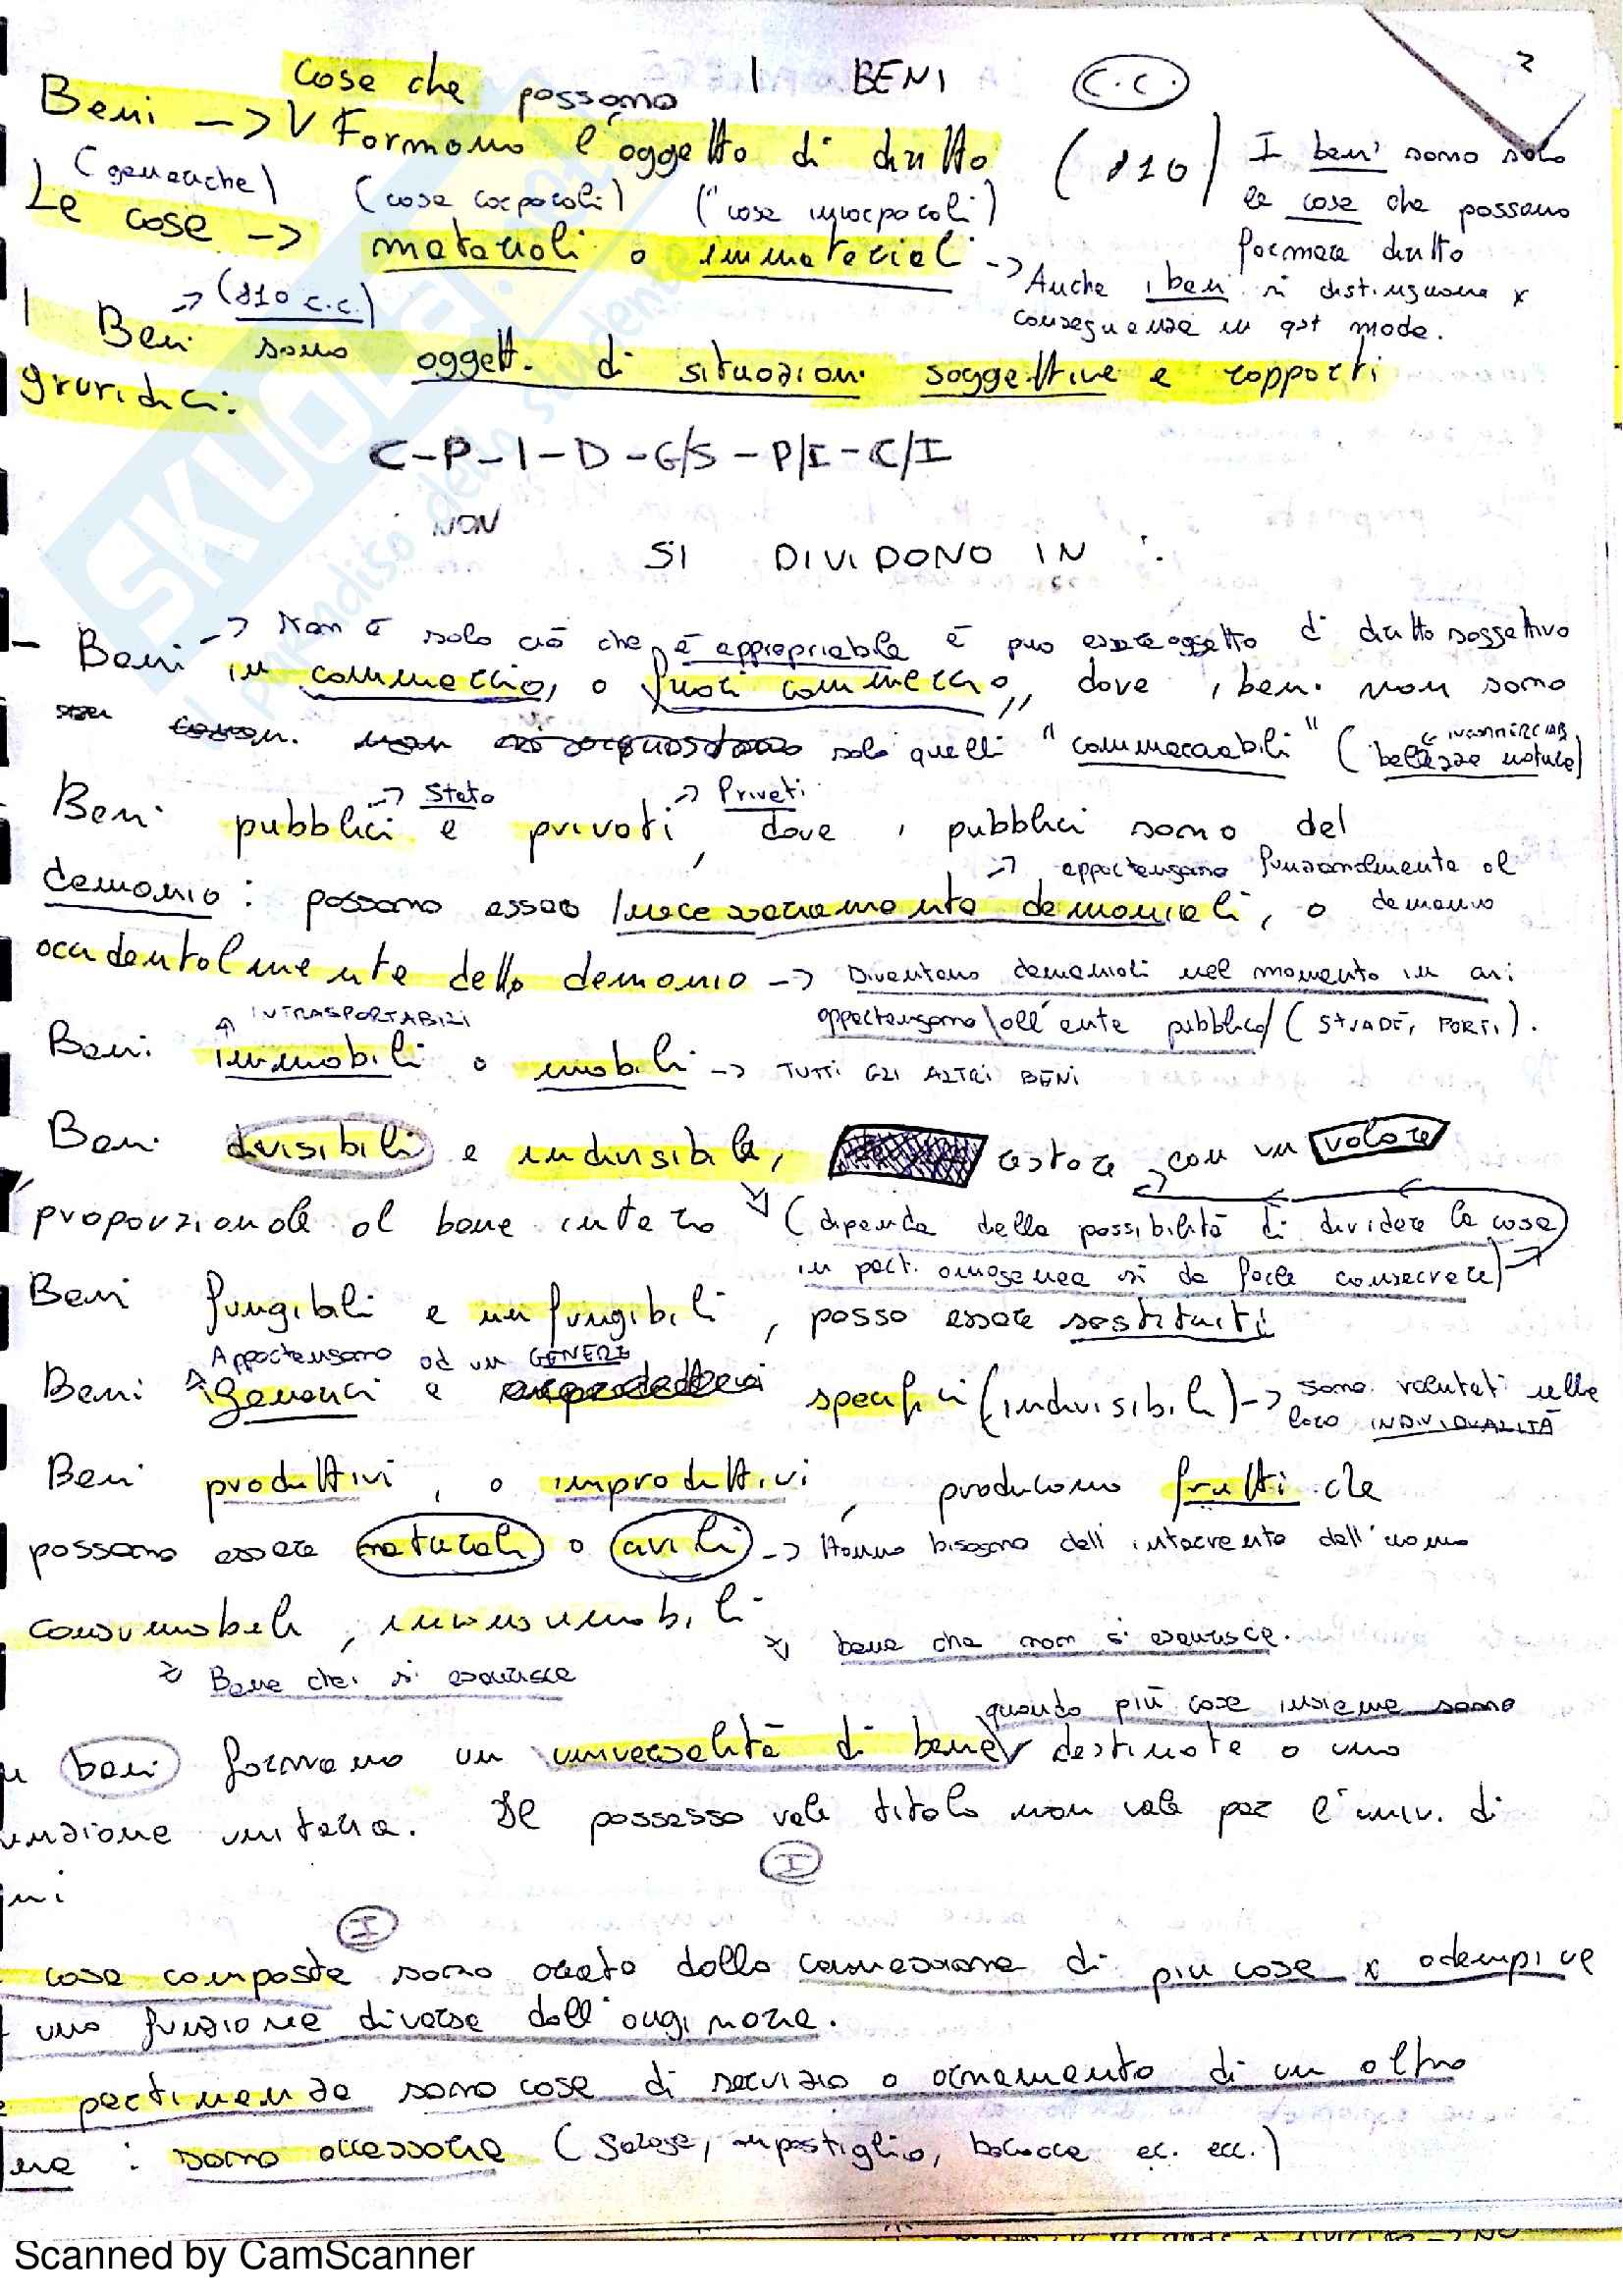 2
I BENI C.C.
cose che possono
Beni -> V Formano l'oggetto di diritto (810)
I beni sono solo
le cose che possano
formare diritto
(generiche) (cose corporali) ("cose incorporali)
Le cose -> materiali o immateriali -> Anche i beni si distinguono x
conseguenza in qst modo.
-> (810 c.c.)
I Beni sono oggett. di situazioni soggettive e rapporti
giuridici:
C-P-I-D-G/S-P/I-C/I
NON
SI DIVIDONO IN :
-> Non è solo ciò che è appropriabile e può essere oggetto di diritto soggettivo
- Beni in commercio, o fuori commercio,, dove i beni non sono
solo quelli "commerciabili" (bellezze natural)
-> Stato -> Privati
Beni pubblici e privati, dove i pubblici sono del
-> appartengano funzionalmente al
demanio : possono essere necessariamente demaniali, o demanio
accidentalmente dello demanio -> Diventano demaniali nel momento in cui
appartengono all'ente pubblico (STRADE, PORTI).
INTRASPORTABILI
Beni immobili o mobili -> TUTTI GLI ALTRI BENI
Beni divisibili e indivisibile, restare con un valore
proporzionale al bene intero (dipende della possibilità di dividere la cosa
in part. omogenea si da farle conservare)
Beni fungibili e infungibili, posso essere sostituiti
Appartengono ad un GENERE
Beni generici e specifici (indivisibili) -> sono valutati nelle
loro INDIVIDUALITÀ
Beni produttivi, o improduttivi, producono frutti che
possono essere naturali o civili -> Hanno bisogno dell'intervento dell'uomo
consumabili, inconsumabili
bene che non si esaurisce.
Bene che si esaurisce
quando più cose insieme sono
beni formano un universalità di bene V destinate a una
unzione unitaria. Il possesso vale titolo non vale per l'univ. di
ni
I
I
cose composte sono create dalla connessione di più cose x adempire
una funzione diversa dall'originaria.
e pertinenze sono cose di servizio o ornamento di un altro
ene : sono accessorie (garage, ripostiglio, ec. ecc.)
Scanned by CamScanner